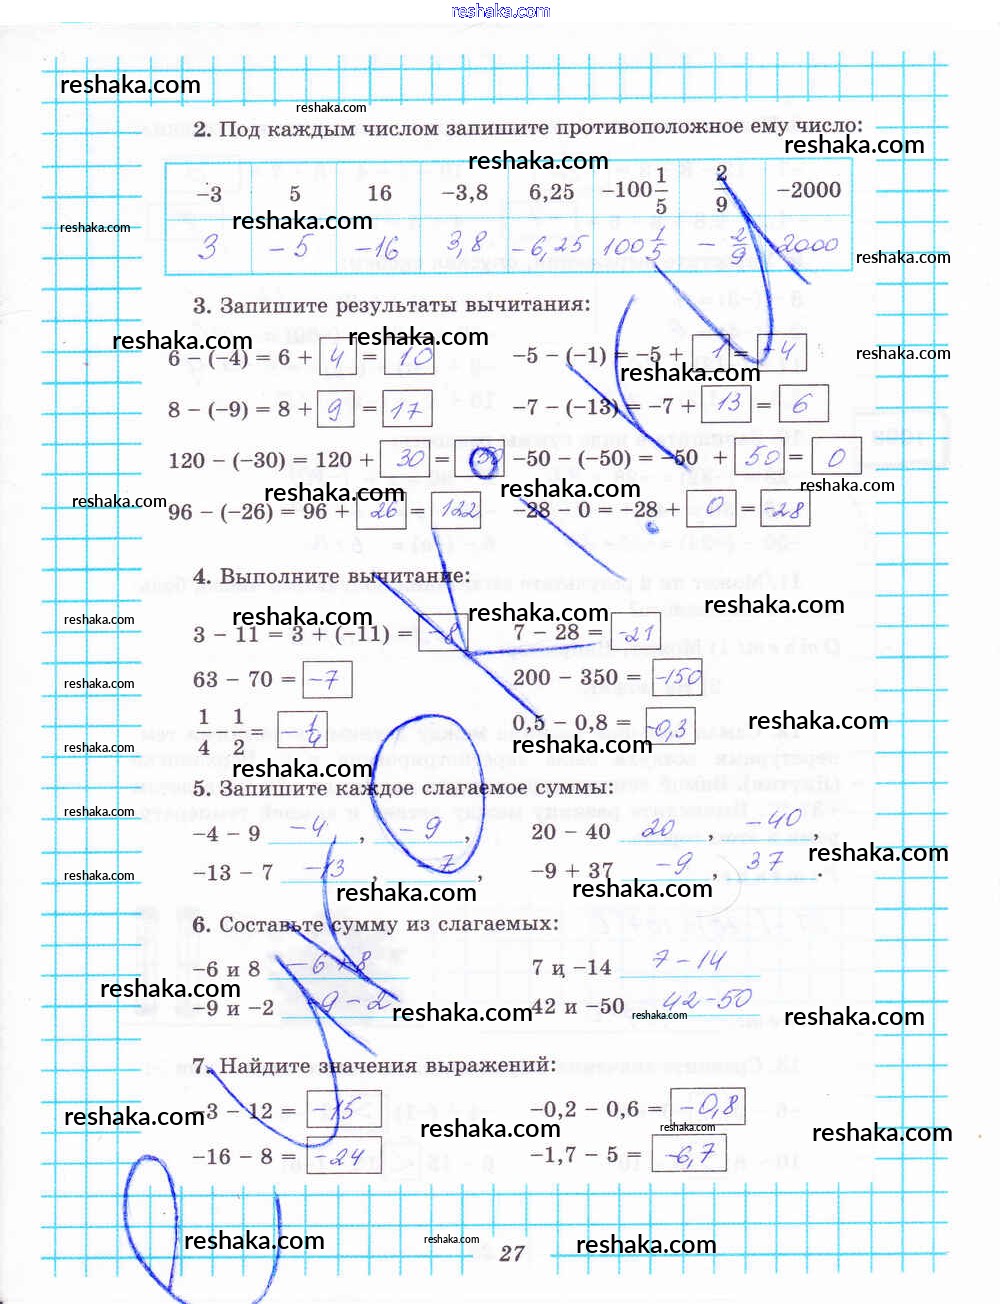 reshaka.com
reshaka.com
reshaka.com
2. Под каждым числом запишите противоположное ему число:
reshaka.com reshaka.com
−3 5 16 −3,8 6,25 −100 1/5 2/9 −2000
reshaka.com reshaka.com
3 −5 −16 3,8 −6,25 100 1/5 −2/9 2000
reshaka.com
3. Запишите результаты вычитания:
reshaka.com reshaka.com reshaka.com
6 − (−4) = 6 + 4 = 10 −5 − (−1) = −5 + 1 = −4
reshaka.com
8 − (−9) = 8 + 9 = 17 −7 − (−13) = −7 + 13 = 6
120 − (−30) = 120 + 30 = −50 − (−50) = −50 + 50 = 0
reshaka.com reshaka.com reshaka.com reshaka.com
96 − (−26) = 96 + 26 = 122 −28 − 0 = −28 + 0 = −28
4. Выполните вычитание:
reshaka.com reshaka.com reshaka.com reshaka.com
3 − 11 = 3 + (−11) = −8 7 − 28 = −21
63 − 70 = −7 200 − 350 = −150
reshaka.com
1/4 1/2 = −1/4 0,5 − 0,8 = −0,3
reshaka.com reshaka.com
reshaka.com
5. Запишите каждое слагаемое суммы:
reshaka.com
−4 − 9 −4 , −9 , 20 − 40 20 , −40 ,
reshaka.com
−13 − 7 −13 , −7 , −9 + 37 −9 , 37 .
reshaka.com reshaka.com reshaka.com
6. Составьте сумму из слагаемых:
−6 и 8 −6+8 7 и −14 7−14
reshaka.com
−9 и −2 −9−2 42 и −50 42−50
reshaka.com reshaka.com reshaka.com
7. Найдите значения выражений:
−3 − 12 = −15 −0,2 − 0,6 = −0,8
reshaka.com reshaka.com reshaka.com reshaka.com
−16 − 8 = −24 −1,7 − 5 = −6,7
reshaka.com reshaka.com reshaka.com
27